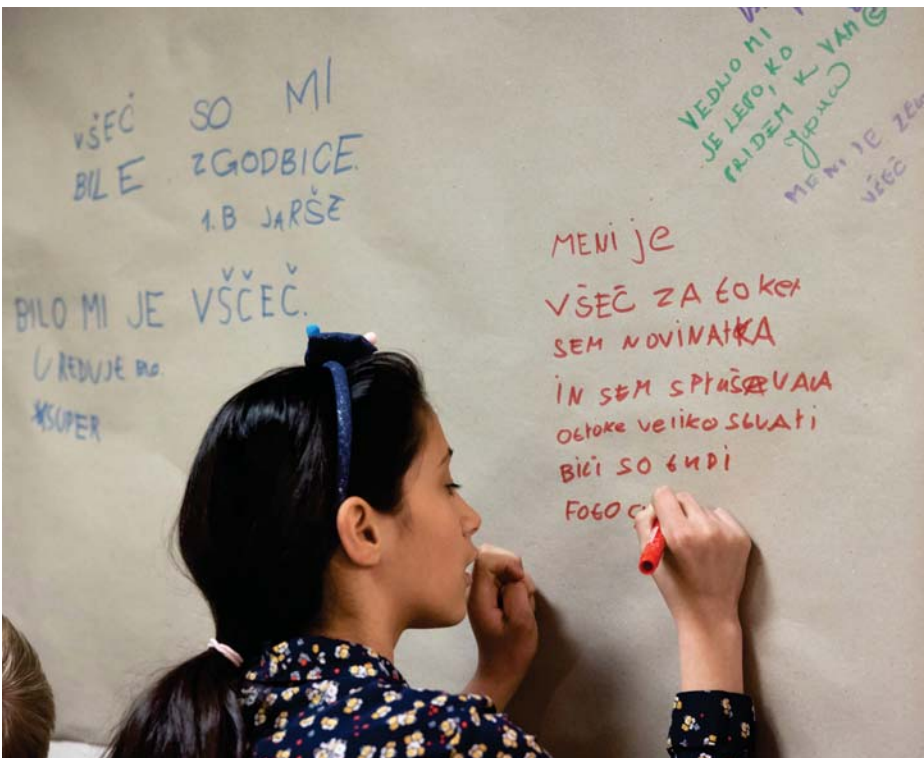 VŠEČ SO MI
BILE ZGODBICE.
1.B JARŠE
BILO MI JE VŠČEČ.
SUPER
VEDNO MI
JE LEPO, KO
PRIDEM K VAM
MENI JE
VŠEČ
MENi je
VŠEČ ZA toker
SEM NOVINARKA
IN SEM SPRAŠEVALA
otroke veliko stvari
BiLi SO tuDi
FOtO